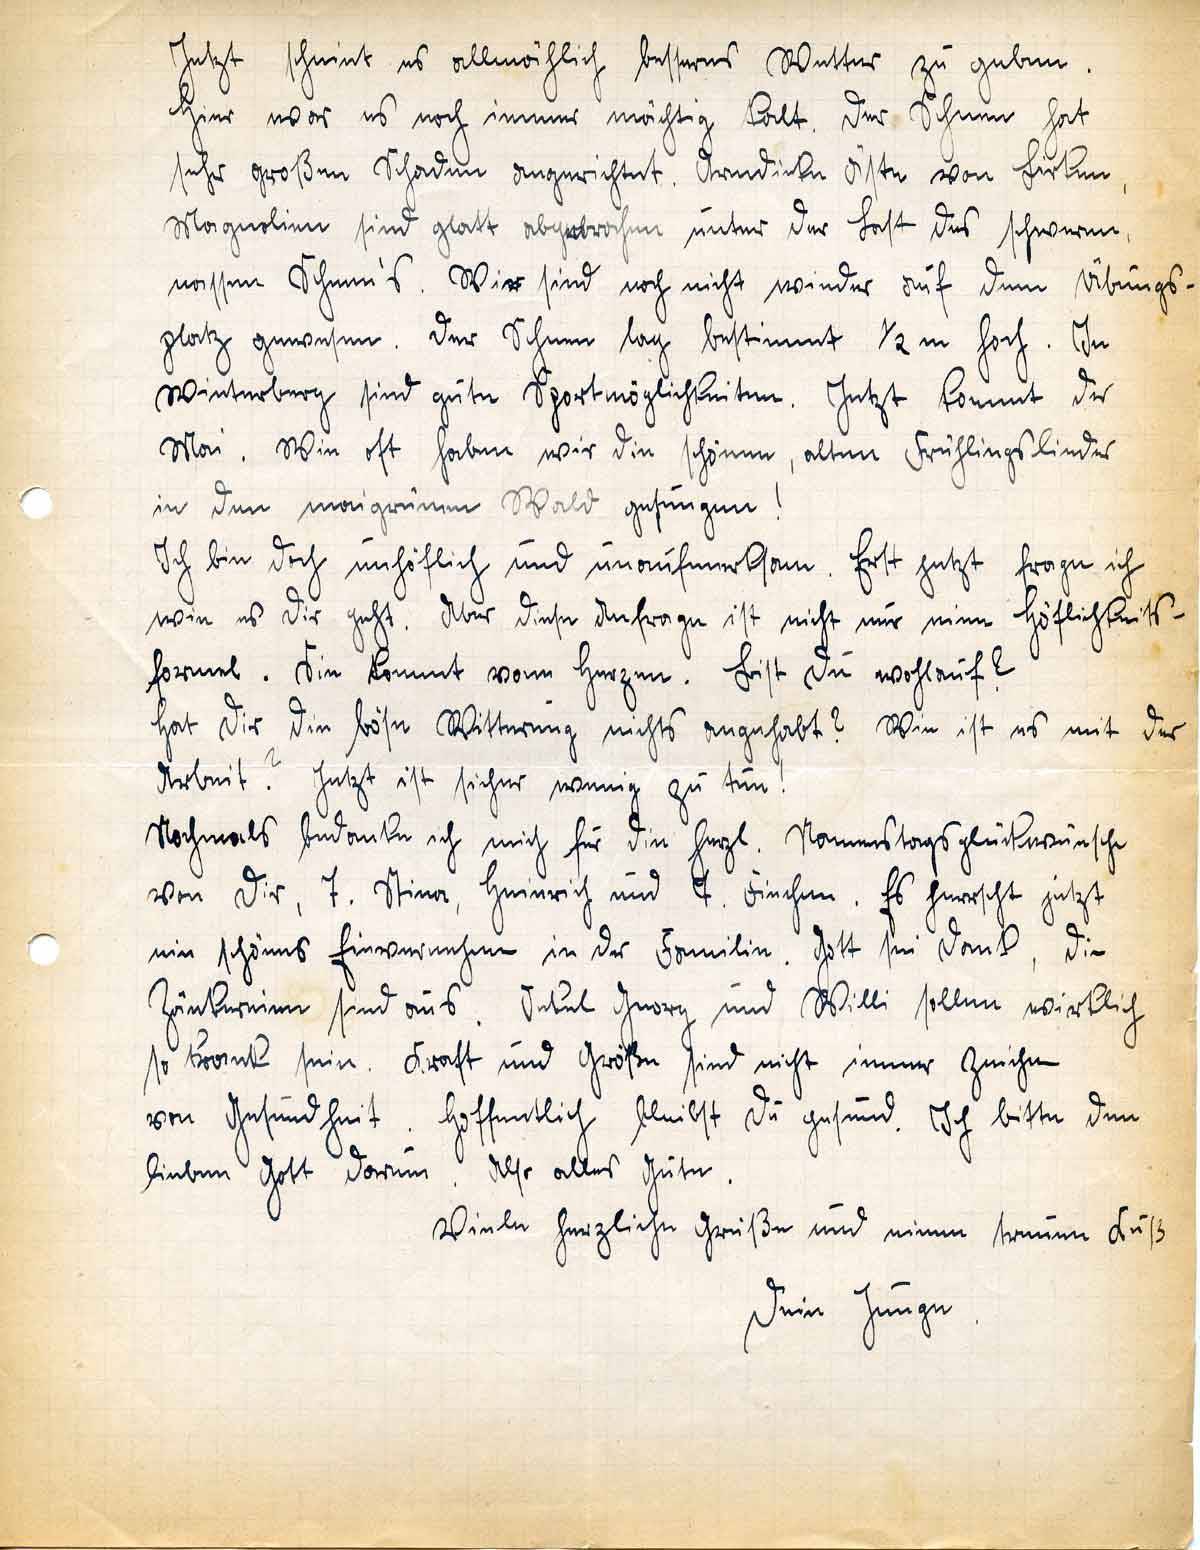 Jetzt scheint es allmählich besseres Wetter zu geben.
Hier war es noch immer mächtig kalt. Der Schnee hat
sehr großen Schaden angerichtet. Armdicke Äste von Birken,
Magnolien sind glatt abgebrochen unter der Last des schweren,
nassen Schnee's. Wir sind noch nicht wieder auf dem Übungs-
platz gewesen. Der Schnee lag bestimmt 1/2 m hoch. In
Winterberg sind gute Sportmöglichkeiten. Jetzt kommt der
Mai. Wie oft haben wir die schönen, alten Frühlingslieder
in den maigrünen Wald gesungen!
Ich bin doch unhöflich und unaufmerksam. Erst jetzt frage ich
wie es Dir geht. Aber diese Anfrage ist nicht nur eine Höflichkeits-
formel. Sie kommt vom Herzen. Bist Du wohlauf?
Hat Dir die böse Witterung nichts angehabt? Wie ist es mit der
Arbeit? Jetzt ist sicher wenig zu tun!
Nochmals bedanke ich mich für die herzl. Namenstagsglückwünsche
von Dir, T. Stina, Heinrich und T. Finchen. Es herrscht jetzt
ein schönes Einvernehmen in der Familie. Gott sei Dank, die
Zänkereien sind aus. Onkel Georg und Willi sollen wirklich
so krank sein. Kraft und Größe sind nicht immer Zeichen
von Gesundheit. Hoffentlich bleibst Du gesund. Ich bitte den
lieben Gott darum. Also alles Gute.
Viele herzliche Grüße und einen treuen Kuß
Dein Junge.